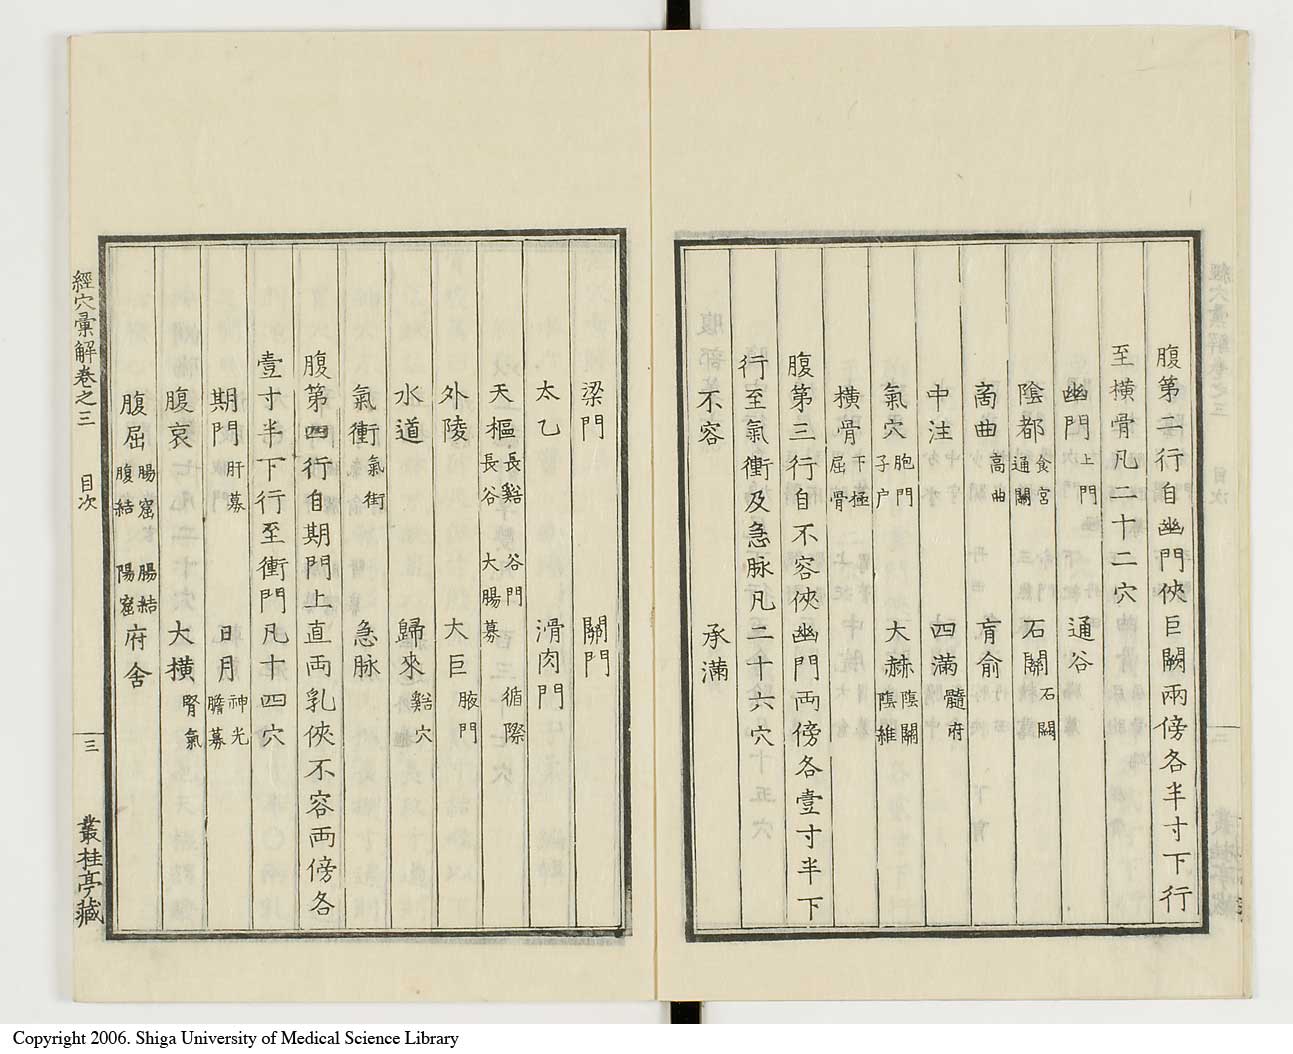 腹第二行自幽門俠巨闕兩傍各半寸下行
至橫骨凡二十二穴
幽門 上門 通谷
陰都 食宮 通關 石關 石闕
啇曲 高曲 肓俞
中注 四滿 髓府
氣穴 胞門 子户 大赫 陰關 陰維
橫骨 下極 屈骨
腹第三行自不容俠幽門両傍各壹寸半下
行至氣衝及急脉凡二十六穴
不容 承滿
梁門 關門
太乙 滑肉門
天樞 長谿 谷門 長谷 大腸募 循際
外陵 大巨 腋門
水道 歸來 谿穴
氣衝 氣街 急脉
腹第四行自期門上直両乳俠不容両傍各
壹寸半下行至衝門凡十四穴
期門 肝募 日月 神光 膽募
腹哀 大橫 腎氣
腹屈 腸窟 腸結 腹結 陽窟 府舍
經穴彙解卷之三 目次 三 叢桂亭藏
Copyright 2006. Shiga University of Medical Science Library